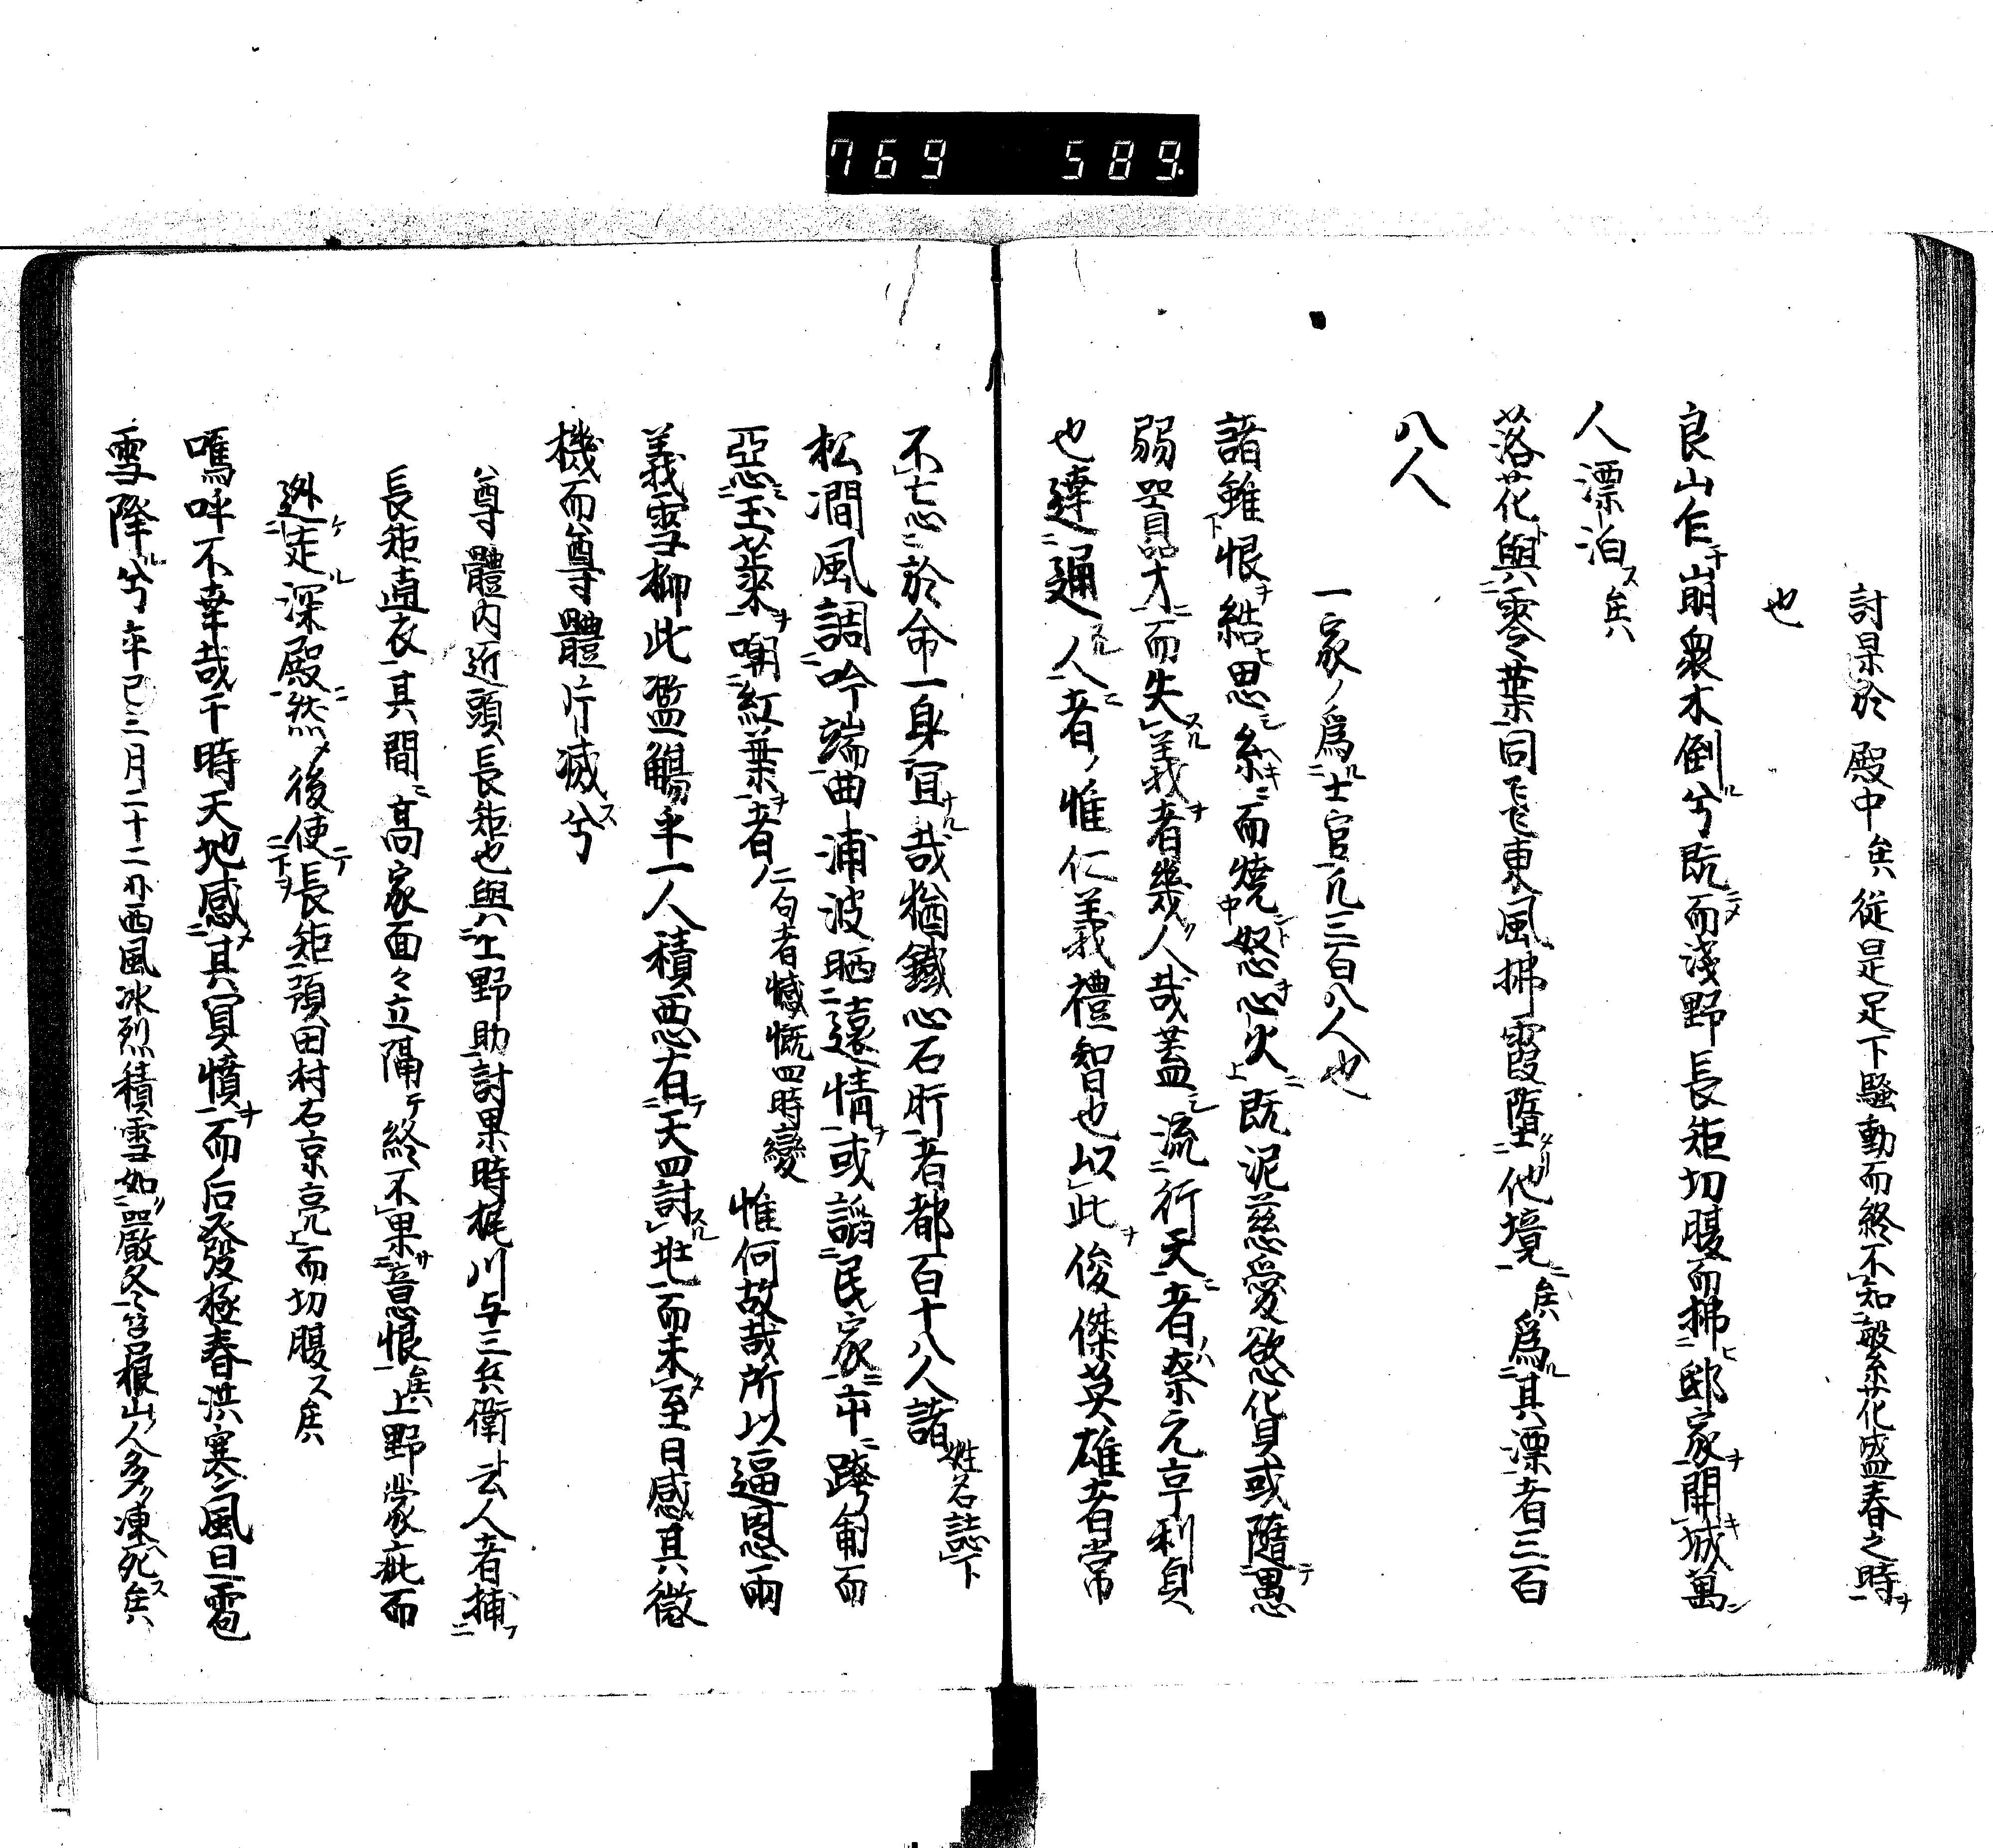 769 589.
討果於殿中矣従是足下騒動而終不知艘糸花盛春之時
也
良山乍崩衆木倒兮既而淺野長矩切腹而拂邸家開城萬
人漂泊ス矣
落花與零葉同飛東風拂霞墮他境矣為其漂者三百
八人
一家ノ為士官凡三百八人也
諸雖恨結思糸而焼怒心火既泥慈愛欲貨或隨愚
弱器才而失義者幾人哉蓋流行天者奈元亨利貞
也達通人者惟仁義禮智也以此俊傑英雄者常
不忘於命一身宜哉猶鐵心石肝者都百十八人諸姓名誌下
松澗風調吟端曲浦波晒遠情或謟民家市踌匍而
惡玉葉嘲紅葉者二句者憾慨四時變惟何故哉所以逼恩兩
義雪柳此濫觴乎一人積悪有天罰討北而未至日感其微
機而尊體片滅ス兮
尊體内近頭長矩也與上野助討果時梶川与三兵衛云人者捕
長矩直衣其間高家面々立隔テ終不果意恨矣上野蒙疵而
迯走深殿然後使長矩預田村右京亮而切腹ス矣
嗚呼不幸哉干時天地感其冥憤而后發極春洪寒風旦雹
雪降兮年巳三月二十二日西風冰烈積雪如嚴冬筥根山人多凍死ス矣